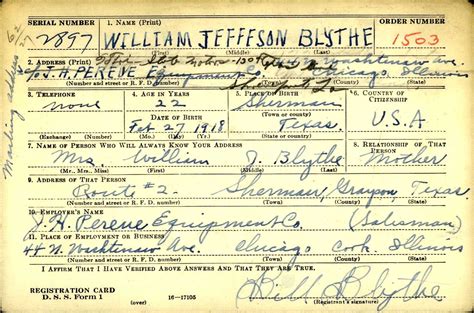 SERIAL NUMBER 1. NAME (Print) ORDER NUMBER
2897 WILLIAM JEFFFSON BLYTHE 1503
(First) (Middle) (Last)
2. ADDRESS (Print)
℅ J. H. PERENE Equipment Co. N. Washtenaw Ave. Chicago, Illinois
Mailing address
3. TELEPHONE 4. AGE IN YEARS 5. PLACE OF BIRTH 6. COUNTRY OF CITIZENSHIP
none 22 Sherman
DATE OF BIRTH (Town or county)
Feb 27 1918 Texas U.S.A
(Exchange) (Number) (Mo.) (Day) (Yr.) (State or country)
7. NAME OF PERSON WHO WILL ALWAYS KNOW YOUR ADDRESS 8. RELATIONSHIP OF THAT PERSON
Mrs. William J. Blythe Mother
(Mr., Mrs., Miss) (First) (Middle) (Last)
9. ADDRESS OF THAT PERSON
Route #2 Sherman, Grayson, Texas
(Number and street or R. F. D. number) (Town) (County) (State)
10. EMPLOYER'S NAME
J. H. Perene Equipment Co. (Salesman)
11. PLACE OF EMPLOYMENT OR BUSINESS
44 N. Washtenaw Ave. Chicago Cook Illinois
(Number and street or R. F. D. number) (Town) (County) (State)
I AFFIRM THAT I HAVE VERIFIED ABOVE ANSWERS AND THAT THEY ARE TRUE.
REGISTRATION CARD
D. S. S. Form 1 (over) 16—17105 Bill Blythe